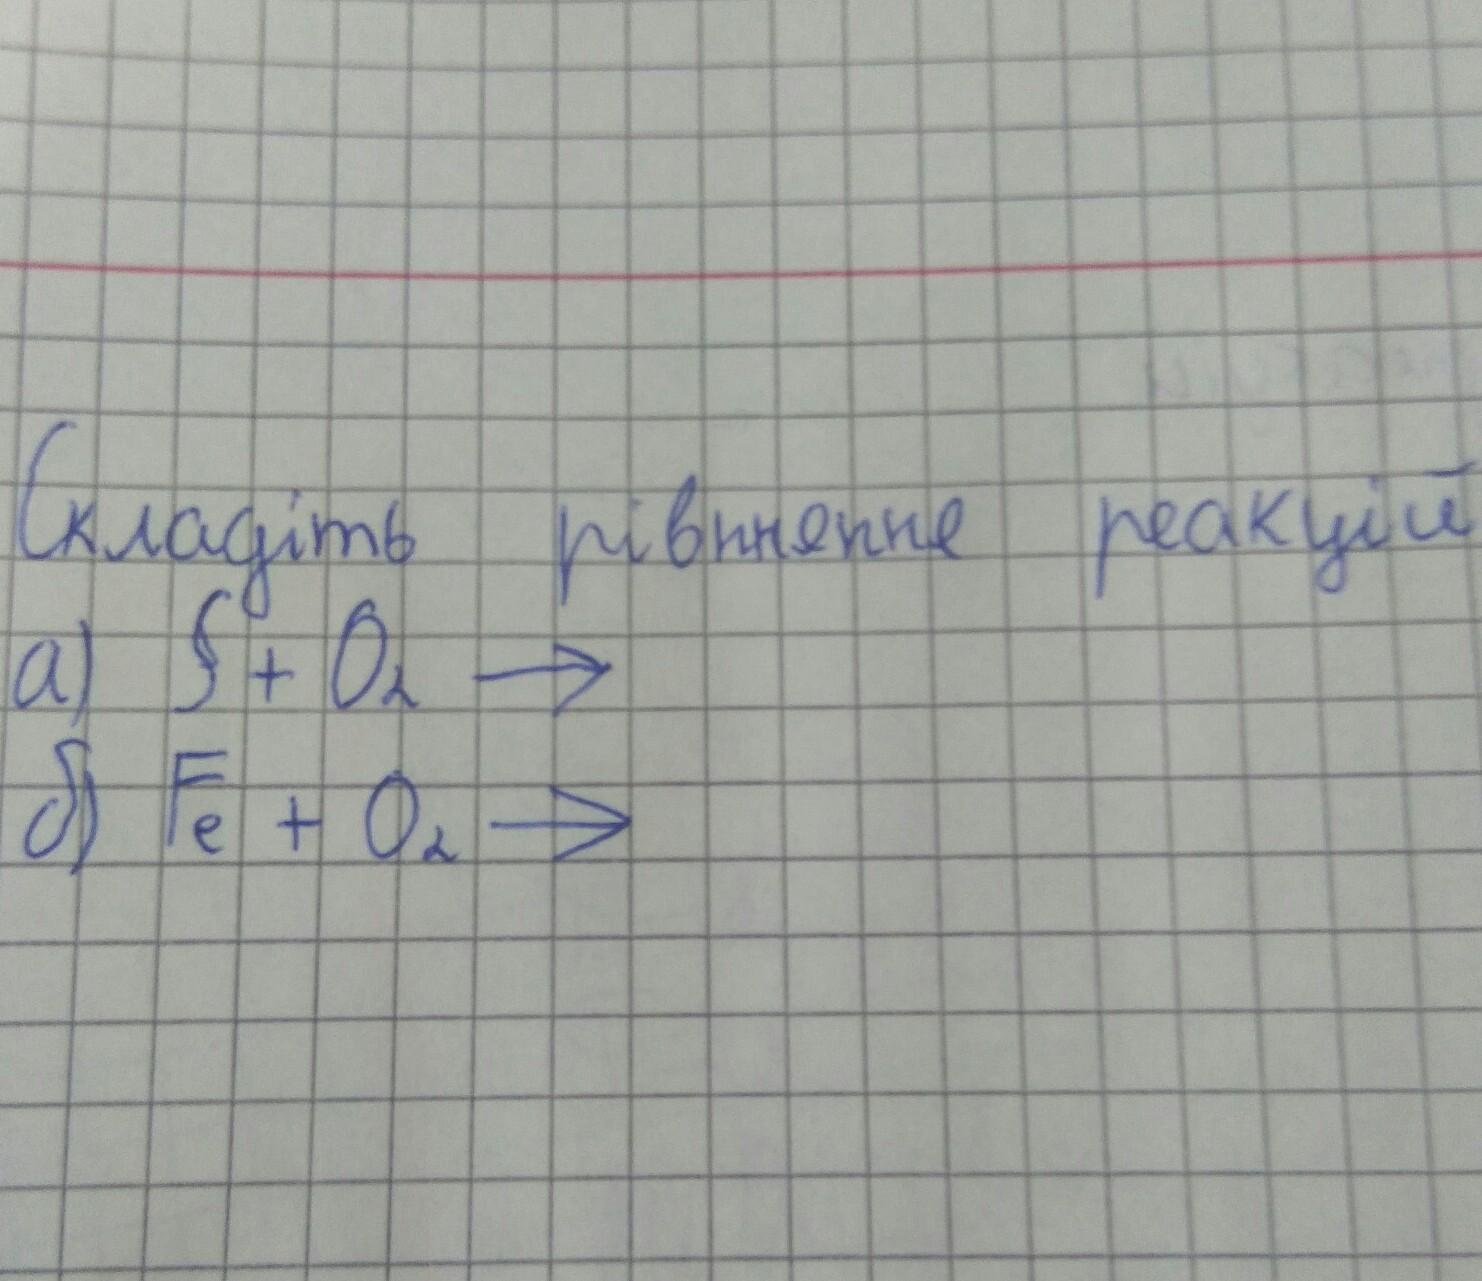 Складіть рівняння реакцій
а) S + O₂ →
б) Fe + O₂ →